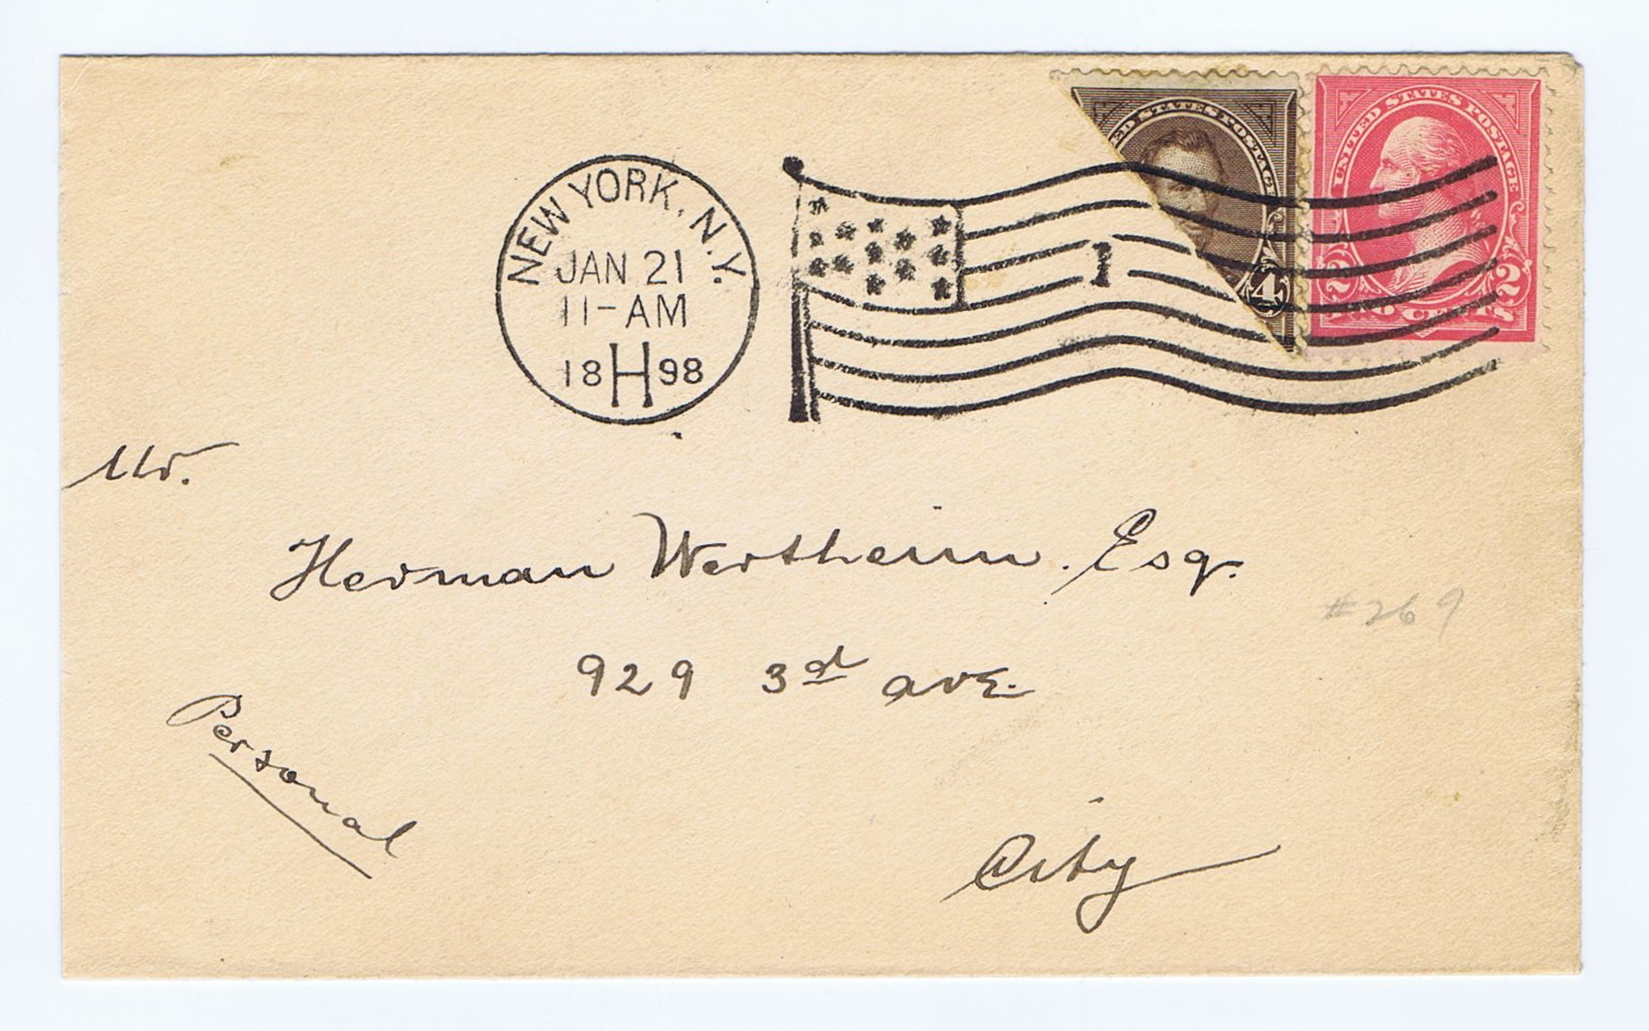 UNITED STATES POSTAGE
ED STATES POSTAGE
4
2 2
TWO CENTS
NEW YORK, N.Y.
JAN 21
11-AM
18 H 98
1
Mr.
Herman Wertheim. Esq.
#269
929 3rd ave.
Personal
City